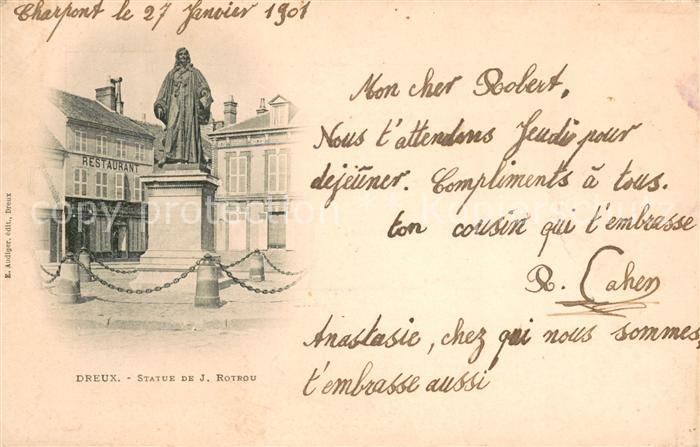 Charpont le 27 Janvier 1901
Mon cher Robert,
Nous t'attendons Jeudi pour
dejeûner. Compliments à tous.
ton cousin qui t'embrasse
R. Cahen
Anastasie, chez qui nous sommes,
t'embrasse aussi
RESTAURANT
E. Audiger, édit., Dreux
DREUX. - STATUE DE J. ROTROU
copy protection Kopierschutz